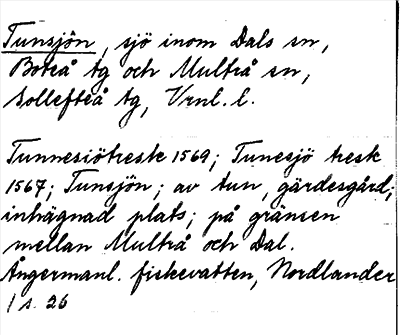 Tunsjön, sjö inom Dals sn,
Boteå tg och Multrå sn,
Sollefteå tg, Vrnl. l.
Tunnesiötresk 1569; Tunesjö tresk
1567; Tunsjön; av tun, gärdesgård;
inhägnad plats; på gränsen
mellan Multrå och Dal.
Ångermanl. fiskevatten, Nordlander
1 s. 26